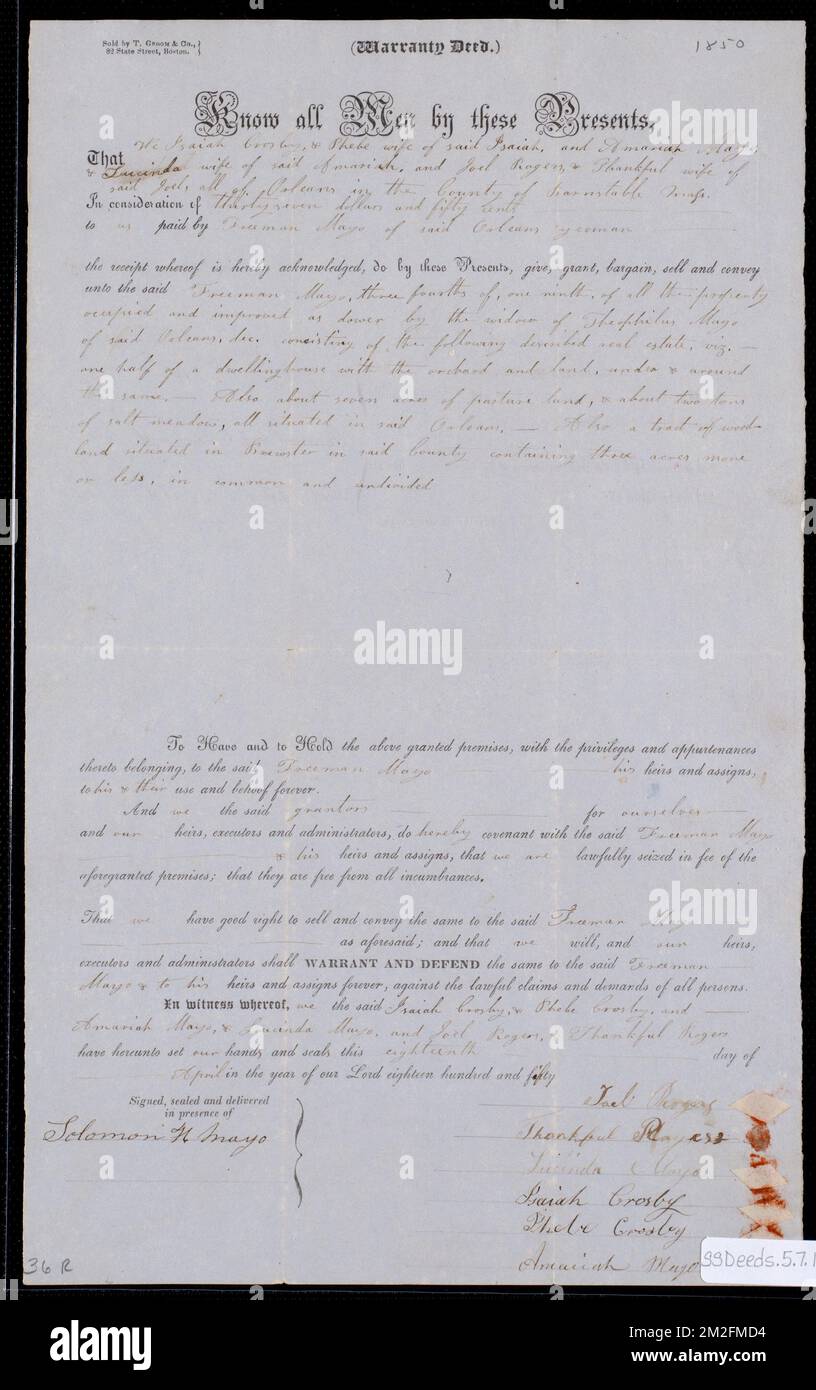 Sold by T. GROOM & Co.,
82 State Street, Boston.
(Warranty Deed.)
1850
Know all Men by these Presents,
That We Isaiah Crosby, & Phebe wife of said Isaiah, and Amariah Mayo
& Lucinda wife of said Amariah, and Joel Rogers, & Thankful wife of
said Joel, all of Orleans in the County of Barnstable Mass.
In consideration of thirty seven dollars and fifty cents
to us paid by Freeman Mayo of said Orleans yeoman
the receipt whereof is hereby acknowledged, do by these Presents, give, grant, bargain, sell and convey
unto the said Freeman Mayo, three fourths of, one ninth, of all the property
occupied and improved as dower by the widow of Theophilus Mayo
of said Orleans, dec. consisting of the following described real estate, viz. —
one half of a dwellinghouse with the orchard and land, under & around
the same. — Also about seven acres of pasture land, & about two tons
of salt meadow, all situated in said Orleans. — Also a tract of wood-
land situated in Brewster in said County containing three acres more
or less, in common and undivided
To Have and to Hold the above granted premises, with the privileges and appurtenances
thereto belonging, to the said Freeman Mayo his heirs and assigns,
to his & their use and behoof forever.
And we the said grantors for ourselves
and our heirs, executors and administrators, do hereby covenant with the said Freeman Mayo
& his heirs and assigns, that we are lawfully seized in fee of the
aforegranted premises; that they are free from all incumbrances.
That we have good right to sell and convey the same to the said Freeman Mayo
as aforesaid; and that we will, and our heirs,
executors and administrators shall WARRANT AND DEFEND the same to the said Freeman
Mayo & to his heirs and assigns forever, against the lawful claims and demands of all persons.
In witness whereof, we the said Isaiah Crosby, & Phebe Crosby, and
Amariah Mayo, & Lucinda Mayo, and Joel Rogers, Thankful Rogers
have hereunto set our hands and seals this eighteenth day of
April in the year of our Lord eighteen hundred and fifty
Signed, sealed and delivered
in presence of
Solomon N Mayo
Joel Rogers
Thankful Rogers
Lucinda Mayo
Isaiah Crosby
Phebe Crosby
Amariah Mayo
SSDeeds.5.7.1
36 R
a alamy
alamy
Image ID: 2M2FMD4
www.alamy.com